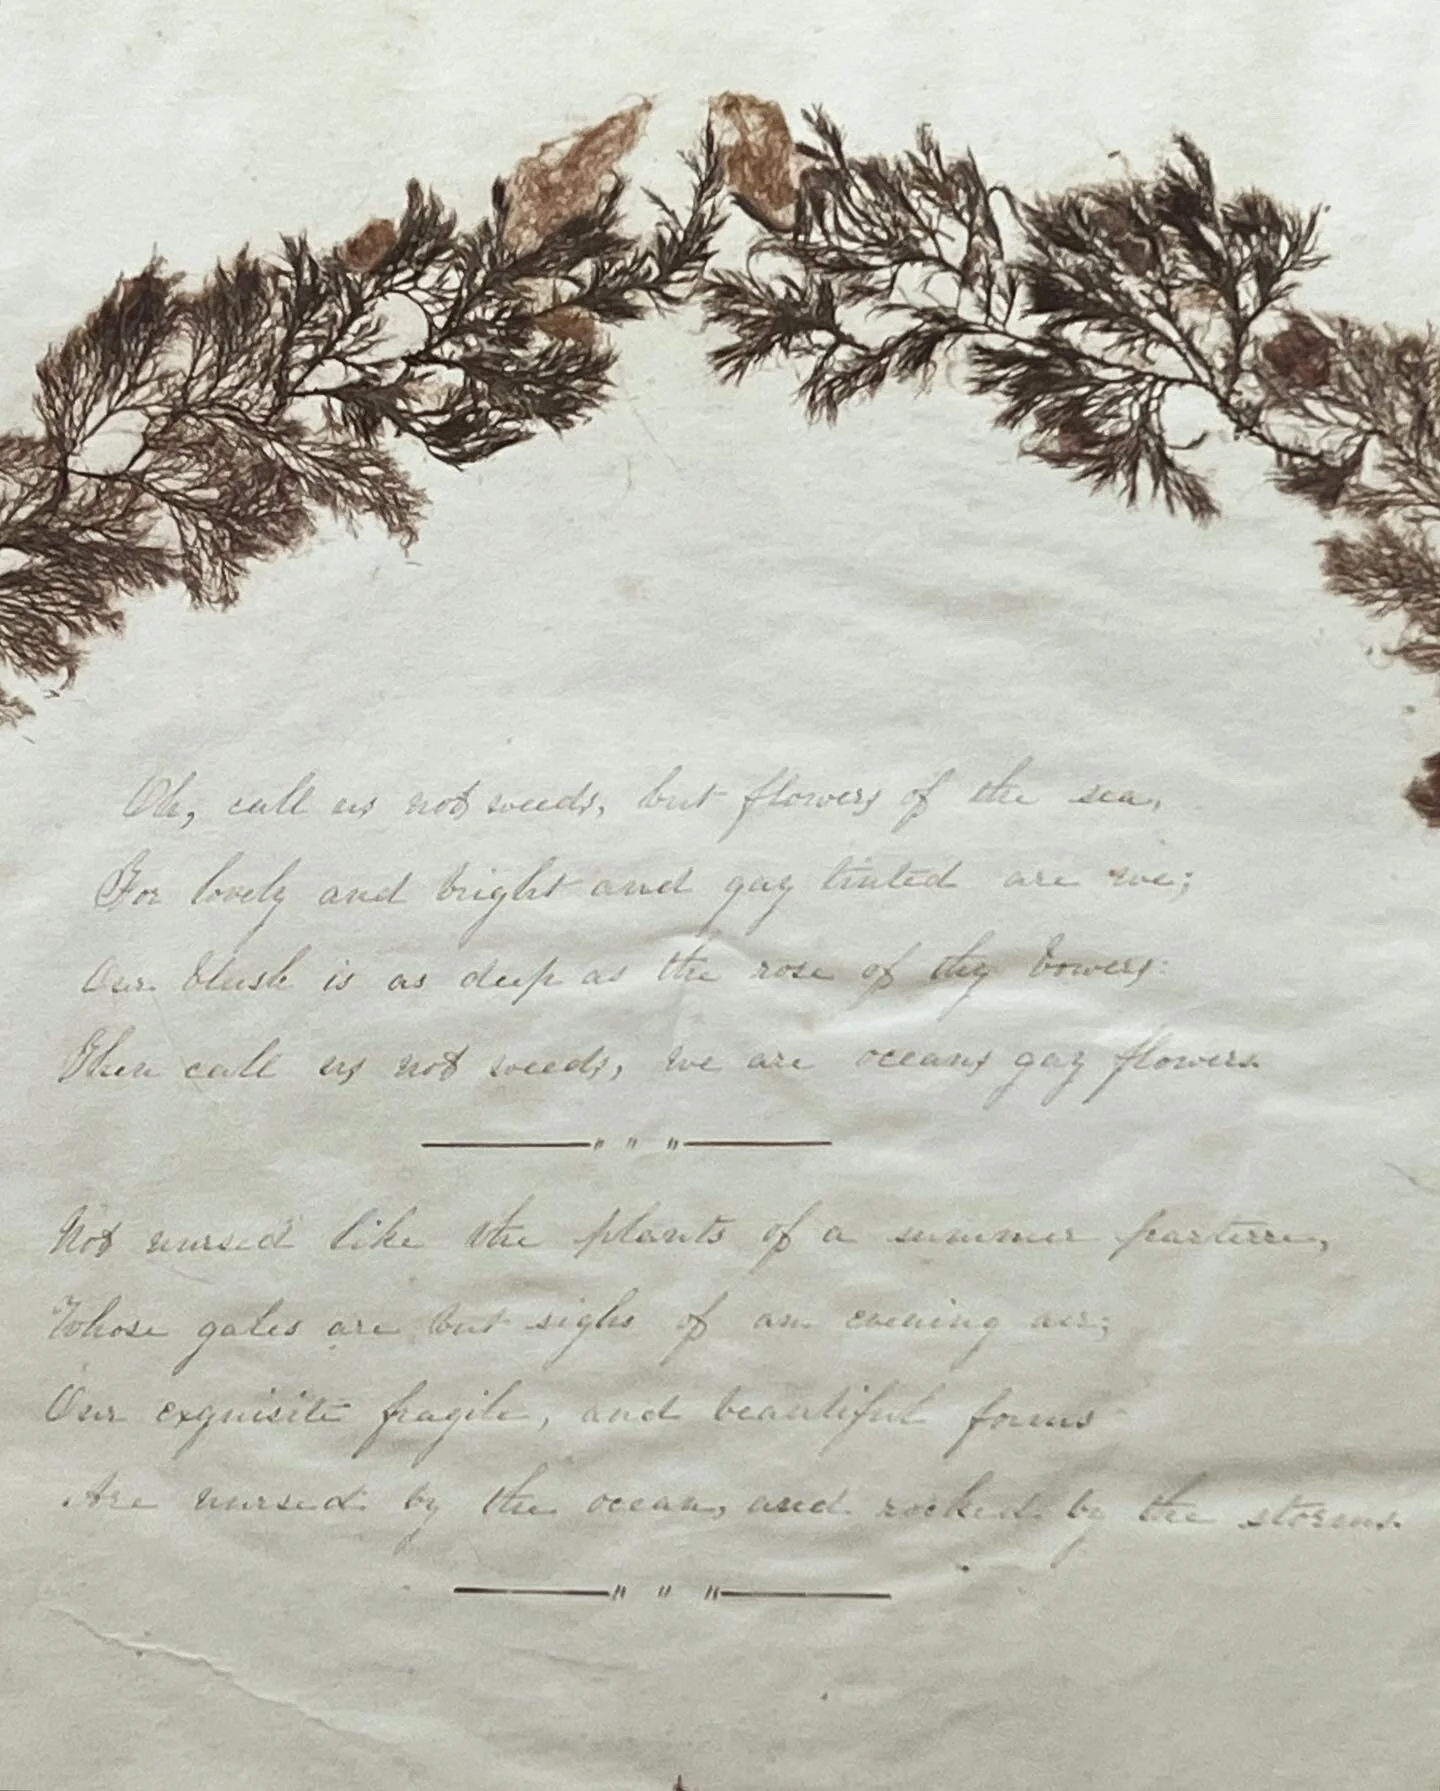 Oh, call us not weeds, but flowers of the sea,
For lovely and bright and gay tinted are we;
Our blush is as deep as the rose of thy bowers:
Then call us not weeds, we are oceans gay flowers.
Not nursed like the plants of a summer parterre,
Whose gales are but sighs of an evening air;
Our exquisite fragile, and beautiful forms
Are nursed by the ocean, and rocked by the storms.